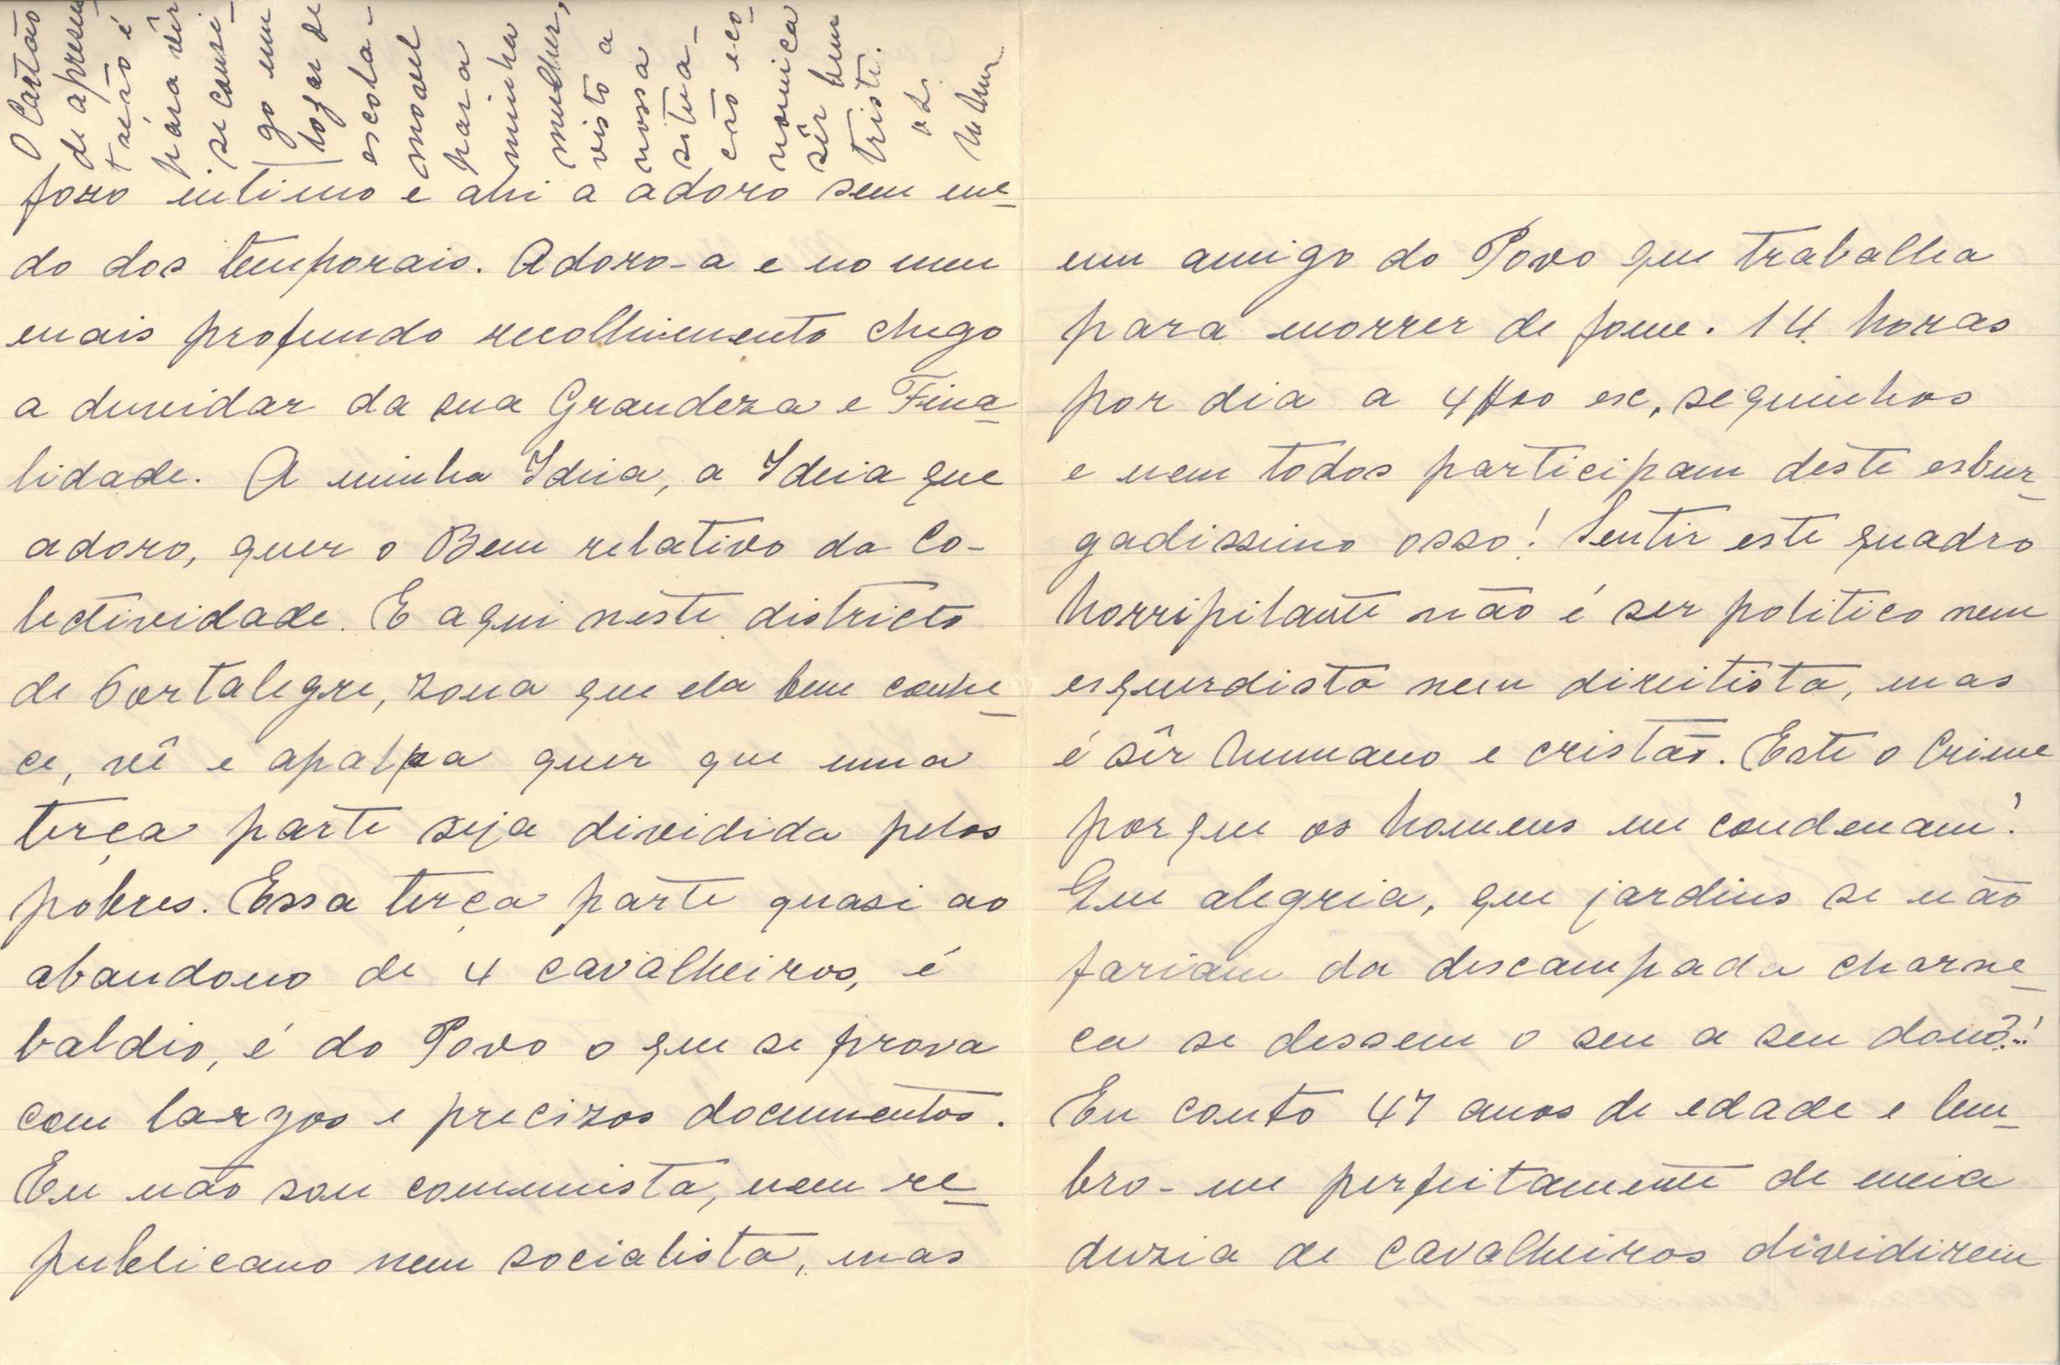 O Cartão
de apresen
tação é
para vêr
se consi-
go um
logar de
escola-
movel
para
minha
mulher,
visto a
nossa
situa-
ção eco-
nomica
sêr bem
triste.
foro intimo e ahi a adoro sem me-
do dos temporais. Adoro-a e no meu
mais profundo recolhimento chego
a duvidar da sua Grandeza e Fina-
lidade. A minha Ideia, a Ideia que
adoro, quer o Bem relativo da Co-
lectividade. E aqui nêste districto
de Portalegre, zona que ela bem conhe-
ce, vê e apalpa quer que uma
terça parte seja dividida pelos
pobres. Essa terça parte quasi ao
abandono de 4 cavalheiros, é
baldio, é do Povo o que se prova
com largos e precizos documentos.
Eu não sou comunista, nem re-
publicano nem socialista, mas
um amigo do Povo que trabalha
para morrer de fome. 14 horas
por dia a 4$00 esc, sequinhos
e nem todos participam dêste esbur-
gadissimo osso! Sentir este quadro
horripilante não é ser politico nem
esquerdista nem direitista, mas
é sêr humano e cristão. Este o Crime
porque os homens me condenam?
Que alegria, que jardins se não
fariam da descampada charne-
ca se dessem o seu a seu dono?..!
Eu conto 47 anos de edade e lem-
bro-me perfeitamente de meia
duzia de cavalheiros dividirem